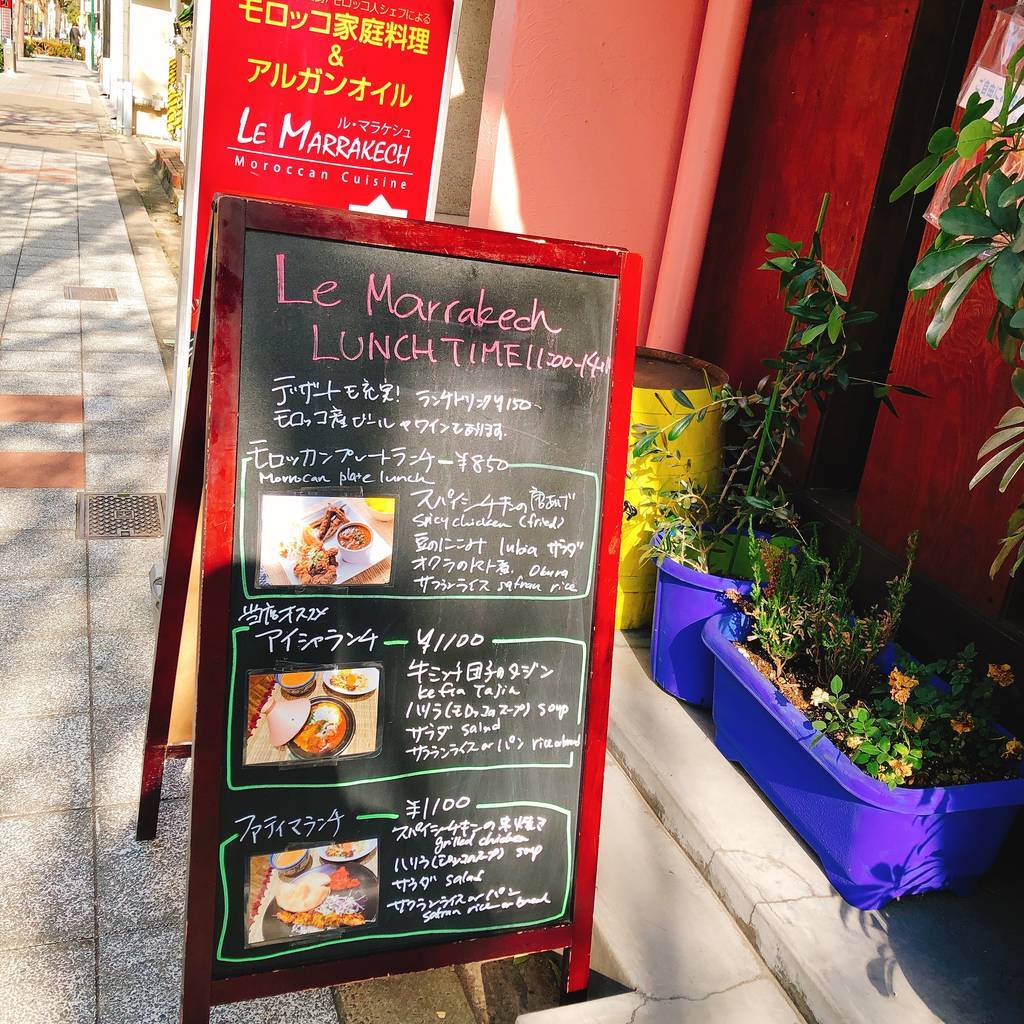 モロッコ人シェフによる
モロッコ家庭料理
&
アルガンオイル
ル・マラケシュ
LE MARRAKECH
Moroccan Cuisine
Le Marrakech
LUNCH TIME 11:00-14:
デザートも充実! ランチドリンク¥150-
モロッコ産ビールやワインもあります。
モロッカンプレートランチ ¥850
Morrocan plate lunch
スパイシーチキンの唐あげ
spicy chicken (fried)
豆のにこみ lubia サラダ
オクラのトマト煮 Okura
サフランライス safran rice
当店オススメ
アイシャランチ ¥1100
牛ミンチ団子のタジン
kefta tajin
ハリラ(モロッコスープ) soup
サラダ salad
サフランライス or パン rice or bread
ファティマランチ ¥1100
スパイシーチキンの串焼き
grilled chicken
ハリラ(モロッコスープ) soup
サラダ salad
サフランライス or パン
safran rice or bread